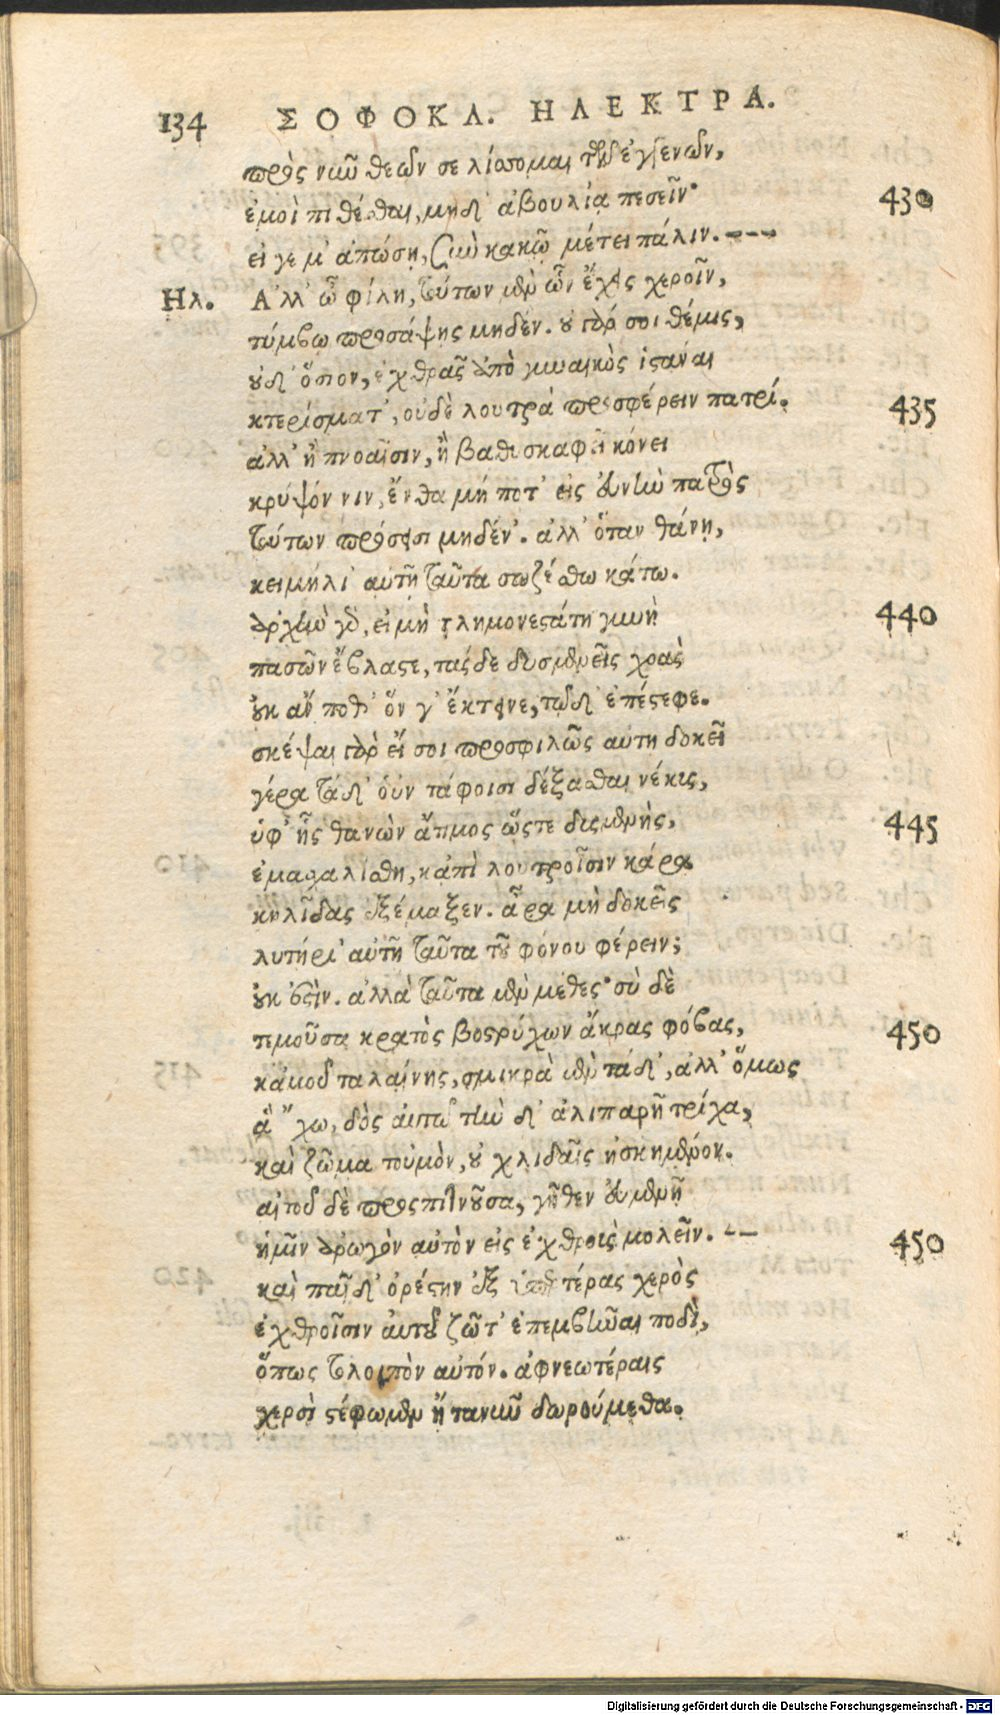 134 ΣΟΦΟΚΛ. ΗΛΕΚΤΡΑ.
πρὸς νυῦ θεῶν σε λίσσομαι τῶν ἐγγενῶν,
ἐμοὶ πιθέσθαι, μηδ' ἀβουλίᾳ πεσεῖν· 430
εἰ γέ μ' ἀπώσῃ, σὺν κακῷ μέτει πάλιν.
Ηλ. Α'λλ' ὦ φίλη, τούτων μὲν ὧν ἔχεις χεροῖν,
τύμβῳ προσάψῃς μηδέν. οὐ γάρ σοι θέμις,
οὐδ' ὅσιον, ἐχθρᾶς ἀπὸ γυναικὸς ἱστάναι
κτερίσματ', οὐδὲ λουτρὰ προσφέρειν πατρί. 435
ἀλλ' ἢ πνοαῖσιν, ἢ βαθυσκαφεῖ κόνει
κρύψόν νιν, ἔνθα μή ποτ' εἰς εὐνὴν πατρὸς
τούτων πρόσεισι μηδέν'. ἀλλ' ὅταν θάνῃ,
κειμήλι' αὐτῇ ταῦτα σωζέσθω κάτω.
ἀρχὴν γὰρ, εἰ μὴ τλημονεστάτη γυνὴ 440
πασῶν ἔβλαστε, τάσδε δυσμενεῖς χοὰς
οὐκ ἄν ποθ' ὅν γ' ἔκτεινε, τῷδ' ἐπέστεφε.
σκέψαι γὰρ εἴ σοι προσφιλῶς αὐτῇ δοκεῖ
γέρα τάδ' οὑν τάφοισι δέξασθαι νέκυς,
ὑφ' ἧς θανὼν ἄτιμος ὥστε δυσμενὴς, 445
ἐμασχαλίσθη, κἀπὶ λουτροῖσιν κάρα
κηλῖδας ἐξέμαξεν. ἆρα μὴ δοκεῖς
λυτήρι' αὐτῇ ταῦτα τοῦ φόνου φέρειν;
οὐκ ἔστιν. ἀλλὰ ταῦτα μὲν μέθες· σὺ δὲ
τεμοῦσα κρατὸς βοστρύχων ἄκρας φόβας, 450
κἀμοῦ ταλαίνης, σμικρὰ μὲν τάδ', ἀλλ' ὅμως
ἃ "χω, δὸς αὐτῷ τήνδ' ἀλιπαρῆ τρίχα,
καὶ ζῶμα τοὐμὸν, οὐ χλιδαῖς ἠσκημένον.
αἰτοῦ δὲ προσπιτνοῦσα, γῆθεν εὐμενῆ
ἡμῖν ἀρωγὸν αὐτὸν εἰς ἐχθροὺς μολεῖν. 450
καὶ παῖδ' ὀρέστην ἐξ ὑπερτέρας χερὸς
ἐχθροῖσιν αὐτοῦ ζῶτ' ἐπεμβῆναι ποδὶ,
ὅπως τὸ λοιπὸν αὐτόν. ἀφνεωτέραις
χερσὶ στέφωμεν ἢ τανυῦ δωρούμεθα.
Digitalisierung gefördert durch die Deutsche Forschungsgemeinschaft - DFG